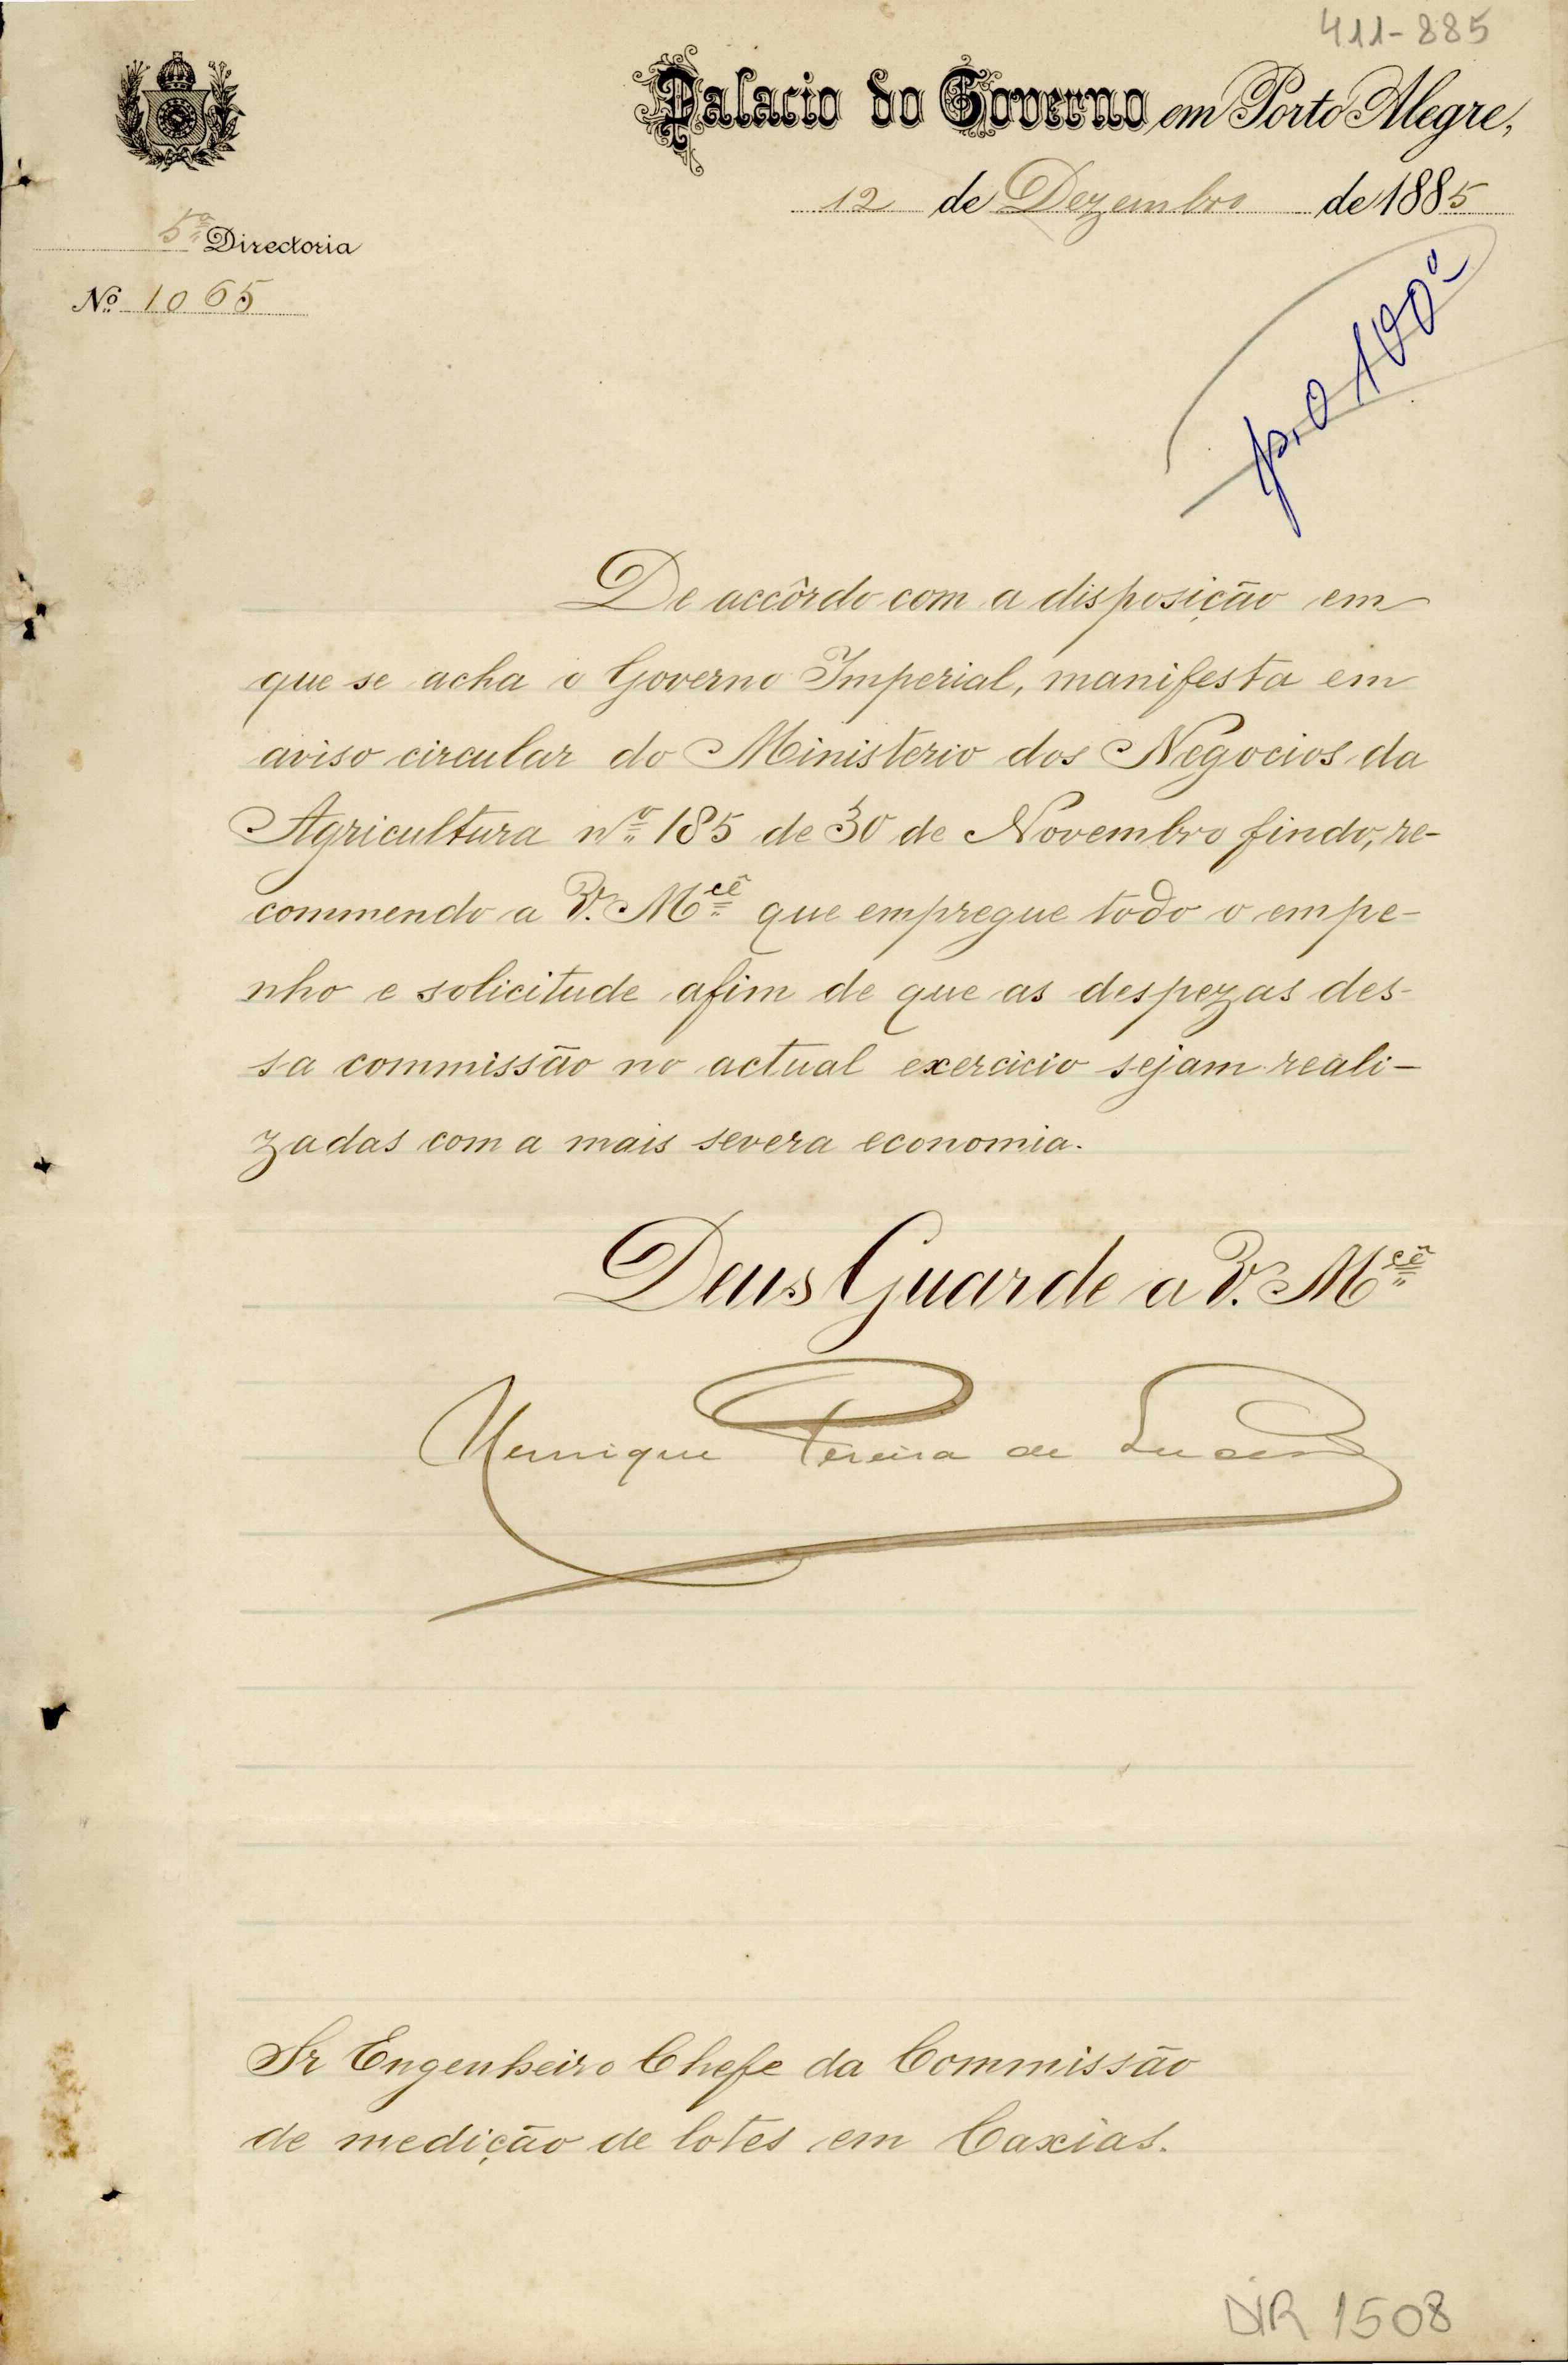 411-885
Palacio do Governo em Porto Alegre,
12 de Dezembro de 1885
5ª Directoria
Nº 1065
De accôrdo com a disposição em
que se acha o Governo Imperial, manifesta em
aviso circular do Ministerio dos Negocios da
Agricultura nº 185 de 30 de Novembro findo, re-
commendo a V. Mcê que empregue todo o empe-
nho e solicitude afim de que as despezas des-
sa commissão no actual exercicio sejam reali-
zadas com a mais severa economia.
Deus Guarde a V. Mcê
Henrique Pereira de Lucena
Sr Engenheiro Chefe da Commissão
de medição de lotes em Caxias.
DIR 1508